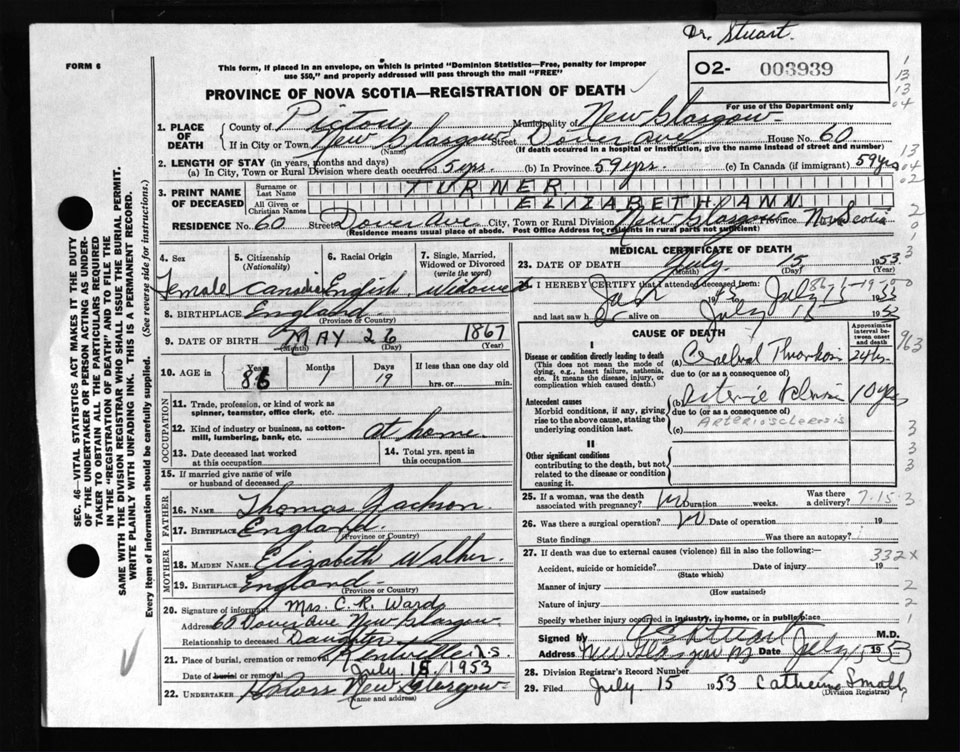 Dr. Stuart.
FORM 6
This form, if placed in an envelope, on which is printed "Dominion Statistics—Free, penalty for improper
use $50," and properly addressed will pass through the mail "FREE"
02- 003939
PROVINCE OF NOVA SCOTIA—REGISTRATION OF DEATH
For use of the Department only
1. PLACE OF DEATH
County of Pictou Municipality of New Glasgow
If in City or Town New Glasgow Street Dover Ave House No. 60
(Name) (If death occurred in a hospital or institution, give the name instead of street and number)
2. LENGTH OF STAY (in years, months and days)
(a) In City, Town or Rural Division where death occurred 5 yrs. (b) In Province 59 yrs. (c) In Canada (if immigrant) 59 yrs
3. PRINT NAME OF DECEASED
Surname or Last Name TURNER
All Given or Christian Names ELIZABETH ANN
RESIDENCE No. 60 Street Dover Ave City, Town or Rural Division New Glasgow Province Nova Scotia
(Residence means usual place of abode. Post Office Address for residents in rural parts not sufficient)
4. Sex
5. Citizenship (Nationality)
6. Racial Origin
7. Single, Married, Widowed or Divorced (write the word)
Female Canadian English Widowed
8. BIRTHPLACE England
(Province or Country)
9. DATE OF BIRTH MAY 26 1867
(Month) (Day) (Year)
10. AGE in Years Months Days If less than one day old
86 1 19 hrs. or min.
OCCUPATION
11. Trade, profession, or kind of work as
spinner, teamster, office clerk, etc.
12. Kind of industry or business, as cotton-
mill, lumbering, bank, etc. at home
13. Date deceased last worked
at this occupation
14. Total yrs. spent in
this occupation
15. If married give name of wife
or husband of deceased
FATHER
16. Name Thomas Jackson
17. Birthplace England
(Province or Country)
MOTHER
18. MAIDEN NAME Elizabeth Walker
19. BIRTHPLACE England
(Province or Country)
20. Signature of informant Mrs. C. R. Ward
Address 60 Dover Ave New Glasgow
Relationship to deceased Daughter
21. Place of burial, cremation or removal Kentville N.S.
Date of burial or removal July 18, 1953
22. UNDERTAKER New Glasgow
(Name and address)
MEDICAL CERTIFICATE OF DEATH
23. DATE OF DEATH July 15 1953
(Month) (Day) (Year)
I HEREBY CERTIFY that I attended deceased from:
July 15 1953
and last saw h alive on July 1953
CAUSE OF DEATH
Approximate interval between onset and death
I
Disease or condition directly leading to death
(This does not mean the mode of
dying, e.g., heart failure, asthenia,
etc. It means the disease, injury, or
complication which caused death.)
(a) Cerebral
due to (or as a consequence of)
Antecedent causes
Morbid conditions, if any, giving
rise to the above cause, stating the
underlying condition last.
(b) 10 yrs
due to (or as a consequence of)
Arteriosclerosis
(c)
II
Other significant conditions
contributing to the death, but not
related to the disease or condition
causing it.
25. If a woman, was the death
associated with pregnancy? No Duration weeks. Was there a delivery? 7.15.3
26. Was there a surgical operation? No Date of operation 19
State findings Was there an autopsy?
27. If death was due to external causes (violence) fill in also the following:— 332X
Accident, suicide or homicide? Date of injury 19
(State which)
Manner of injury
(How sustained)
Nature of injury
Specify whether injury occurred in industry, in home, or in public place
Signed by M.D.
Address New Glasgow NS Date July 15 1953
28. Division Registrar's Record Number
29. Filed July 15 1953 Catherine Small
(Division Registrar)
SEC. 46—VITAL STATISTICS ACT MAKES IT THE DUTY
OF THE UNDERTAKER OR PERSON ACTING AS UNDER-
TAKER TO OBTAIN ALL THE PARTICULARS REQUIRED
IN THE "REGISTRATION OF DEATH" AND TO FILE THE
SAME WITH THE DIVISION REGISTRAR WHO SHALL ISSUE THE BURIAL PERMIT.
WRITE PLAINLY WITH UNFADING INK. THIS IS A PERMANENT RECORD.
Every item of information should be carefully supplied. (See reverse side for instructions.)